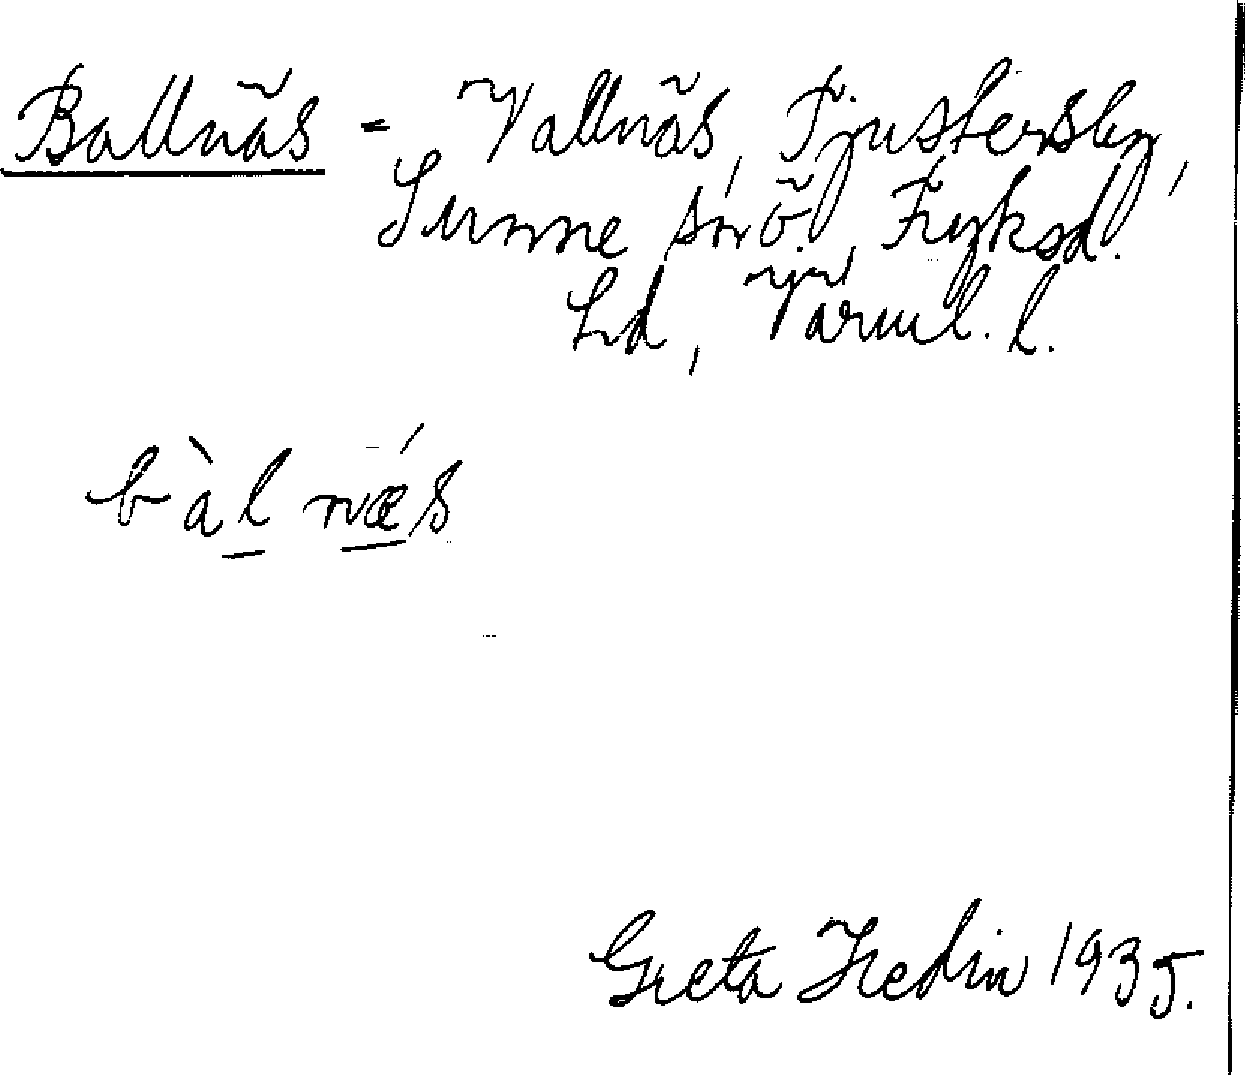 Ballnäs = Vallnäs, Fjustersby,
Sunne snö., Fryksd.
Hd, Värml. l.
bàl næ´s
Greta Hedin 1935.